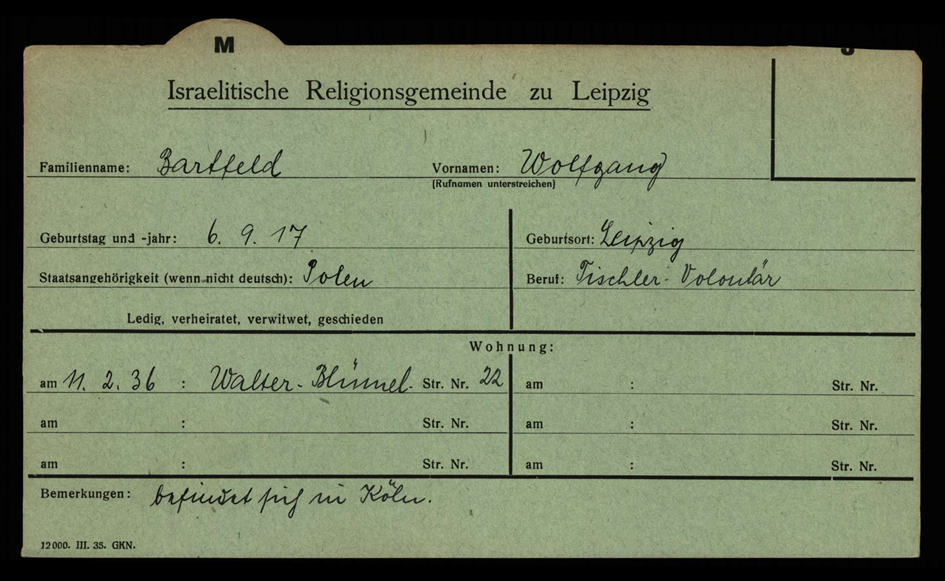 M
Israelitische Religionsgemeinde zu Leipzig
Familienname: Bartfeld Vornamen: Wolfgang
(Rufnamen unterstreichen)
Geburtstag und -jahr: 6. 9. 17 Geburtsort: Leipzig
Staatsangehörigkeit (wenn nicht deutsch): Polen Beruf: Tischler-Volontär
Ledig, verheiratet, verwitwet, geschieden
Wohnung:
am 11. 2. 36 : Walter-Blümel- Str. Nr. 22 am : Str. Nr.
am : Str. Nr. am : Str. Nr.
am : Str. Nr. am : Str. Nr.
Bemerkungen: befindet sich in Köln.
12000. III. 35. GKN.